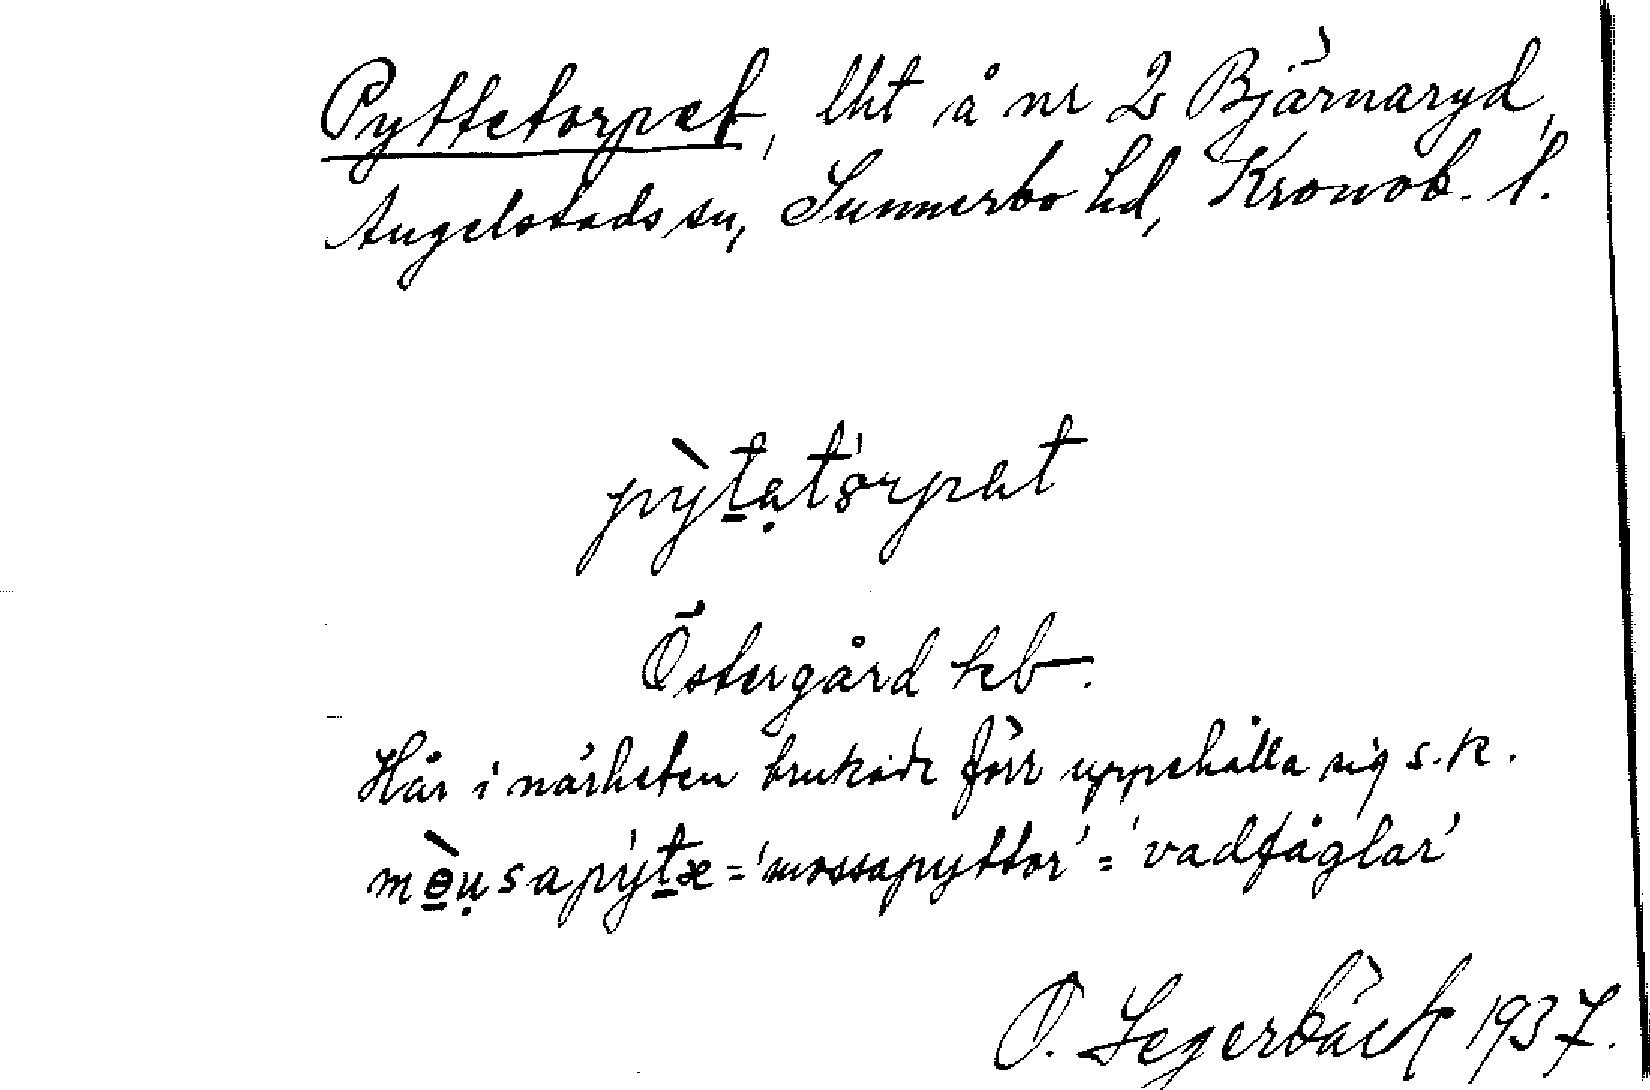 Pyttetorpet, lht å nr 2 Bjärnaryd,
Angelstads sn, Sunnerbo hd, Kronob. l.
pỳt̲ạtǫrpət
Östergård kb.
Här i närheten brukade förr uppehålla sig s.k.
mө̲̀ụsapyt̲æ = 'mossapyttor' = 'vadfåglar'
O. Segerbäck 1937.